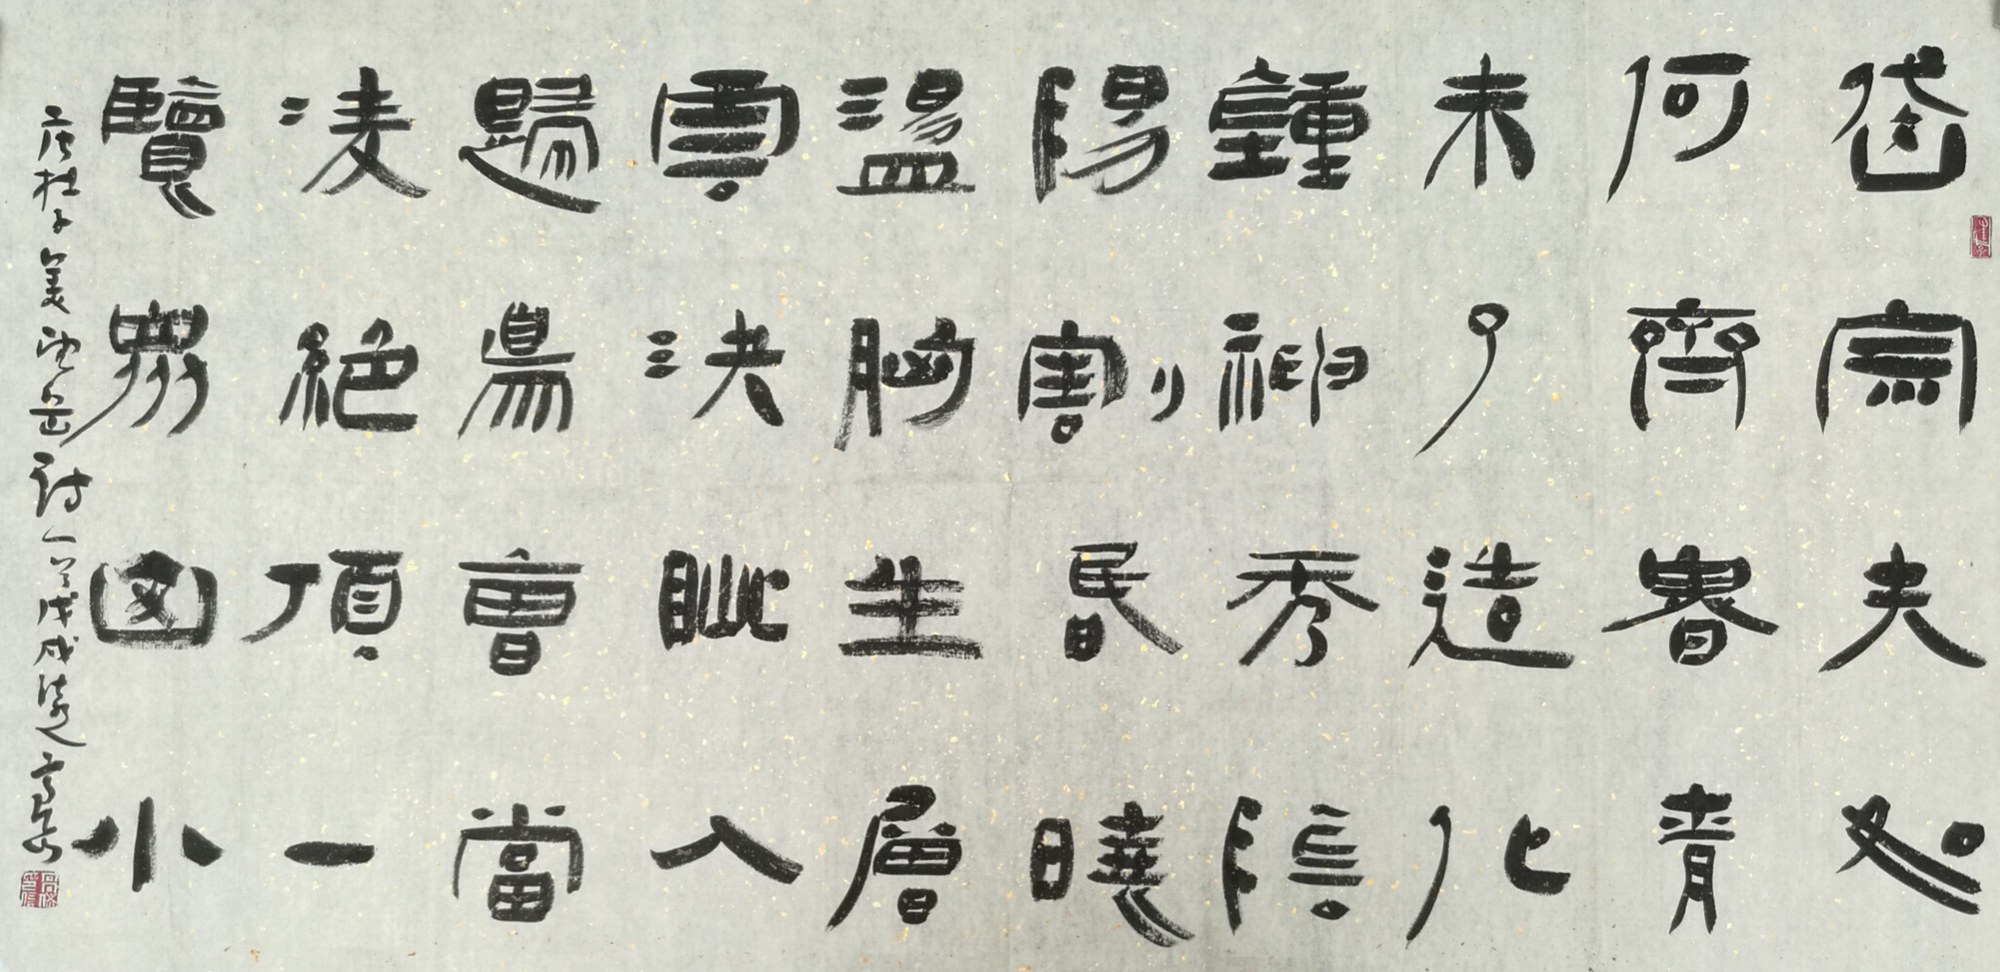 岱宗夫如
何齊魯青
未了造化
鍾神秀陰
陽割昬曉
盪胸生層
雲決眥入
歸鳥會當
凌絕頂一
覽眾山小
唐杜子美望岳詩一首戊戌